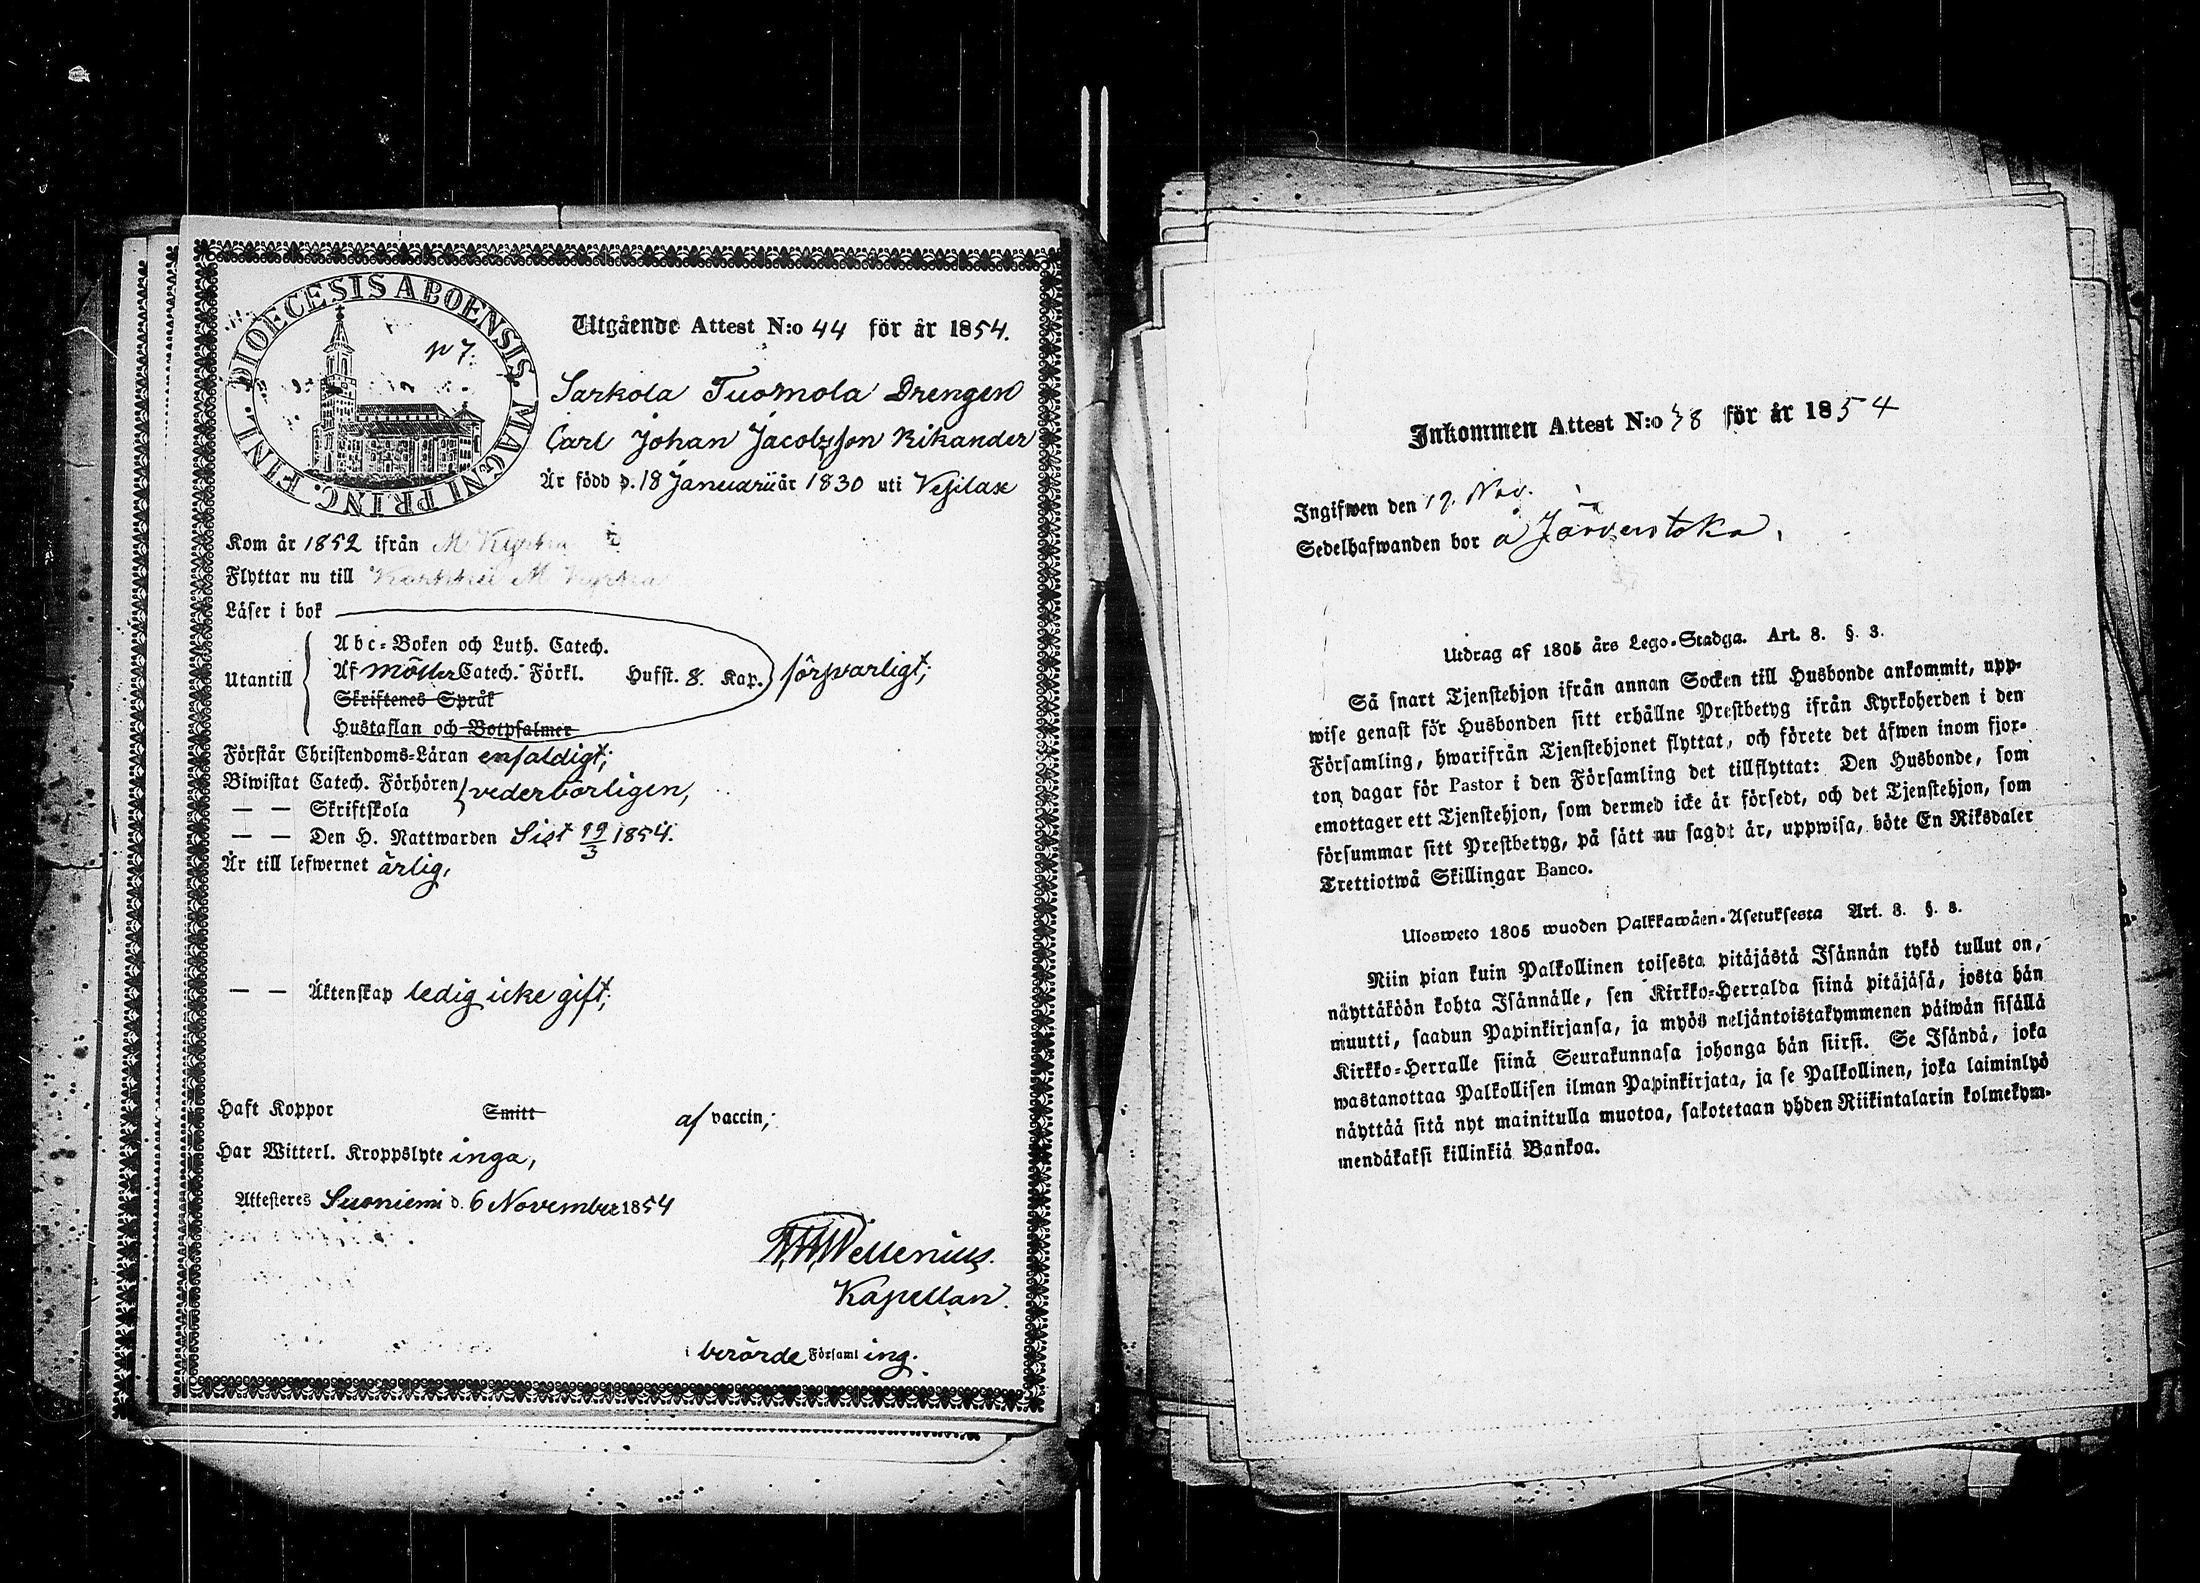 DIOECESIS ABOENSIS. MAGNI PRINC. FINL.
p 7.
Utgående Attest N:o 44 för år 1854.
Sarkola Tuomola Drengen
Carl Johan Jacobsson Kikander
Är född d. 18 Januarii år 1830 uti Vesilax
Kom år 1852 ifrån M Kyrkia
Flyttar nu till Karkkui M Kyrkia
Läser i bok
Abc-Boken och Luth. Catech.
Utantill Af Möller Catech. Förkl. Husst. 8. Kap. försvarligt;
Skriftenes Språk
Hustaflan och Botpsalmer
Förstår Christendoms-Läran enfaldigt;
Biwistat Catech. Förhören vederbörligen,
— — Skriftskola
— — Den H. Nattwarden Sist 19/3 1854.
Är till lefwernet ärlig,
— — Äktenskap ledig icke gift;
Haft Koppor Smitt af vaccin;
Har Witterl. Kroppslyte inga,
Attesteres Suoniemi d. 6 November 1854
Wellenius.
Kapellan.
i berörde Församling.
Inkommen Attest N:o 38 för år 1854
Ingifwen den 19. Nov.
Sedelhafwanden bor å
Utdrag af 1805 års Lego-Stadga. Art. 8. §. 3.
Så snart Tjenstehjon ifrån annan Socken till Husbonde ankommit, upp-
wise genast för Husbonden sitt erhållne Prestbetyg ifrån Kyrkoherden i den
Församling, hwarifrån Tjenstehjonet flyttat, och förete det äfwen inom fjor-
ton dagar för Pastor i den Församling det tillflyttat: Den Husbonde, som
emottager ett Tjenstehjon, som dermed icke är försedt, och det Tjenstehjon, som
försummar sitt Prestbetyg, på sätt nu sagdt är, uppwisa, böte En Riksdaler
Trettiotwå Skillingar Banco.
Ulosweto 1805 wuoden Palkkawäen-Asetuksesta Art. 8. §. 3.
Niin pian kuin Palkollinen toisesta pitäjästä Isännän tykö tullut on,
näyttäköön kohta Isännälle, sen Kirkko-Herralda siinä pitäjäsä, josta hän
muutti, saadun Papinkirjansa, ja myös neljäntoistakymmenen päiwän sisällä
Kirkko-Herralle siinä Seurakunnasa johonga hän siirsi. Se Isändä, joka
wastanottaa Palkollisen ilman Papinkirjata, ja se Palkollinen, joka laiminlyö
näyttää sitä nyt mainitulla muotoa, sakotetaan yhden Riikintalarin kolmekym-
mendäkaksi killinkiä Bankoa.